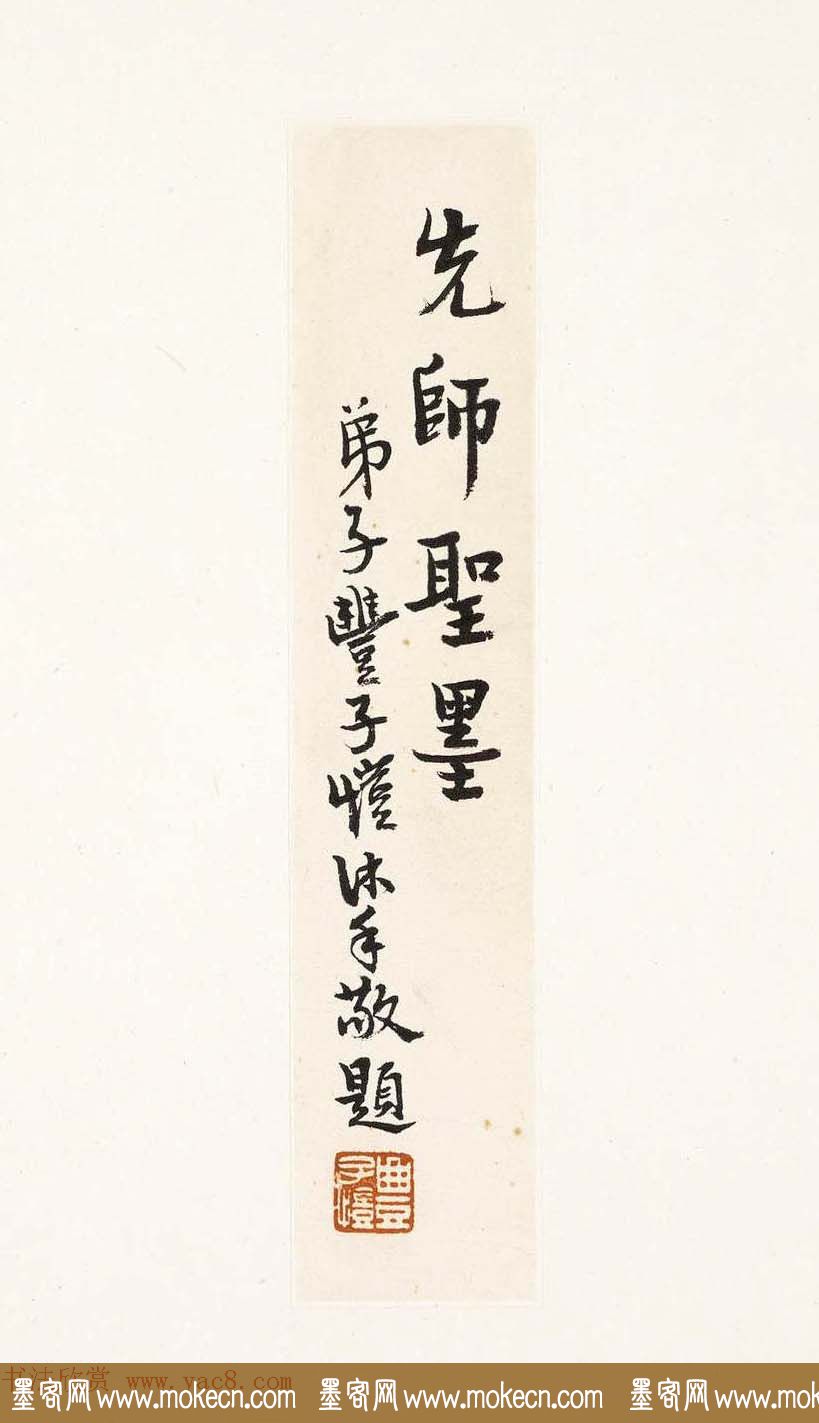 先師聖墨
弟子豐子愷沐手敬題
豐子愷
书法欣赏 www.yac8.com
墨客网 www.mokecn.com 墨客网 www.mokecn.com 墨客网 www.mokecn.com